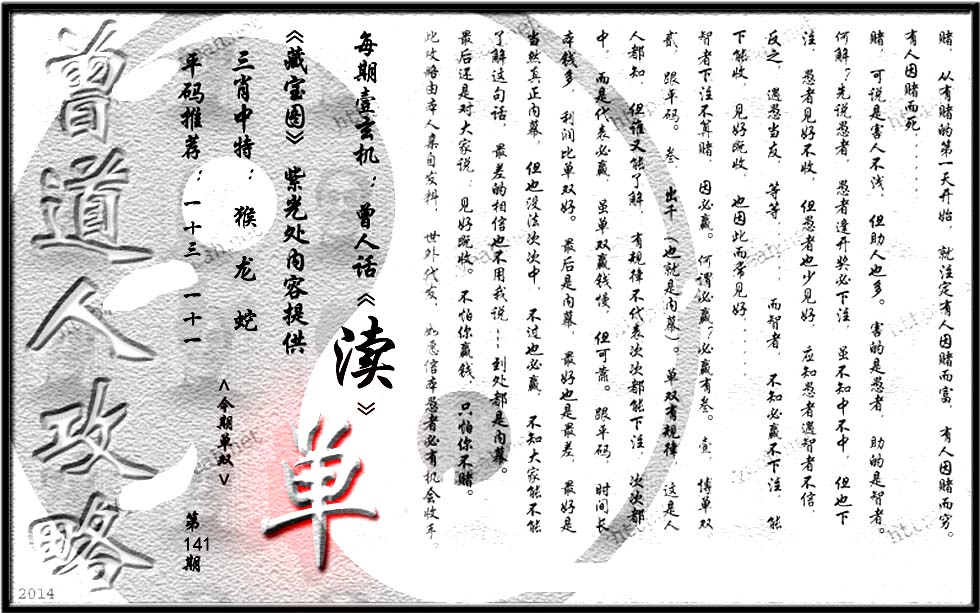 赌，从有赌的第一天开始，就注定有人因赌而富，有人因赌而穷。
有人因赌而死......
赌，可说是害人不浅，但助人也多。害的是愚者，助的是智者。
何解？先说愚者，愚者逢开奖必下注，虽不知中不中，但也下
注，愚者见好不收，但愚者也少见好，应知愚者遇智者不信，
反之，遇愚当友，等等......，而智者，不知必赢不下注，能
下能收，见好既收，也因此而常见好......
智者下注不算赌，因必赢。何谓必赢？必赢有叁。壹，博单双
贰，跟平码。叁，出千（也就是内幕）。单双有规律，这是人
人都知，但谁又能了解，有规律不代表次次都能下注，次次都
中，而是代表必赢，虽单双赢钱慢，但可靠。跟平码，时间长
本钱多，利润比单双好。最后是内幕，最好也是最差，最好是
当然真正内幕，但也没法次次中，不过也必赢，不知大家能不能
了解这句话，最差的相信也不用我说——到处都是内幕。
最后还是对大家说：见好既收。不怕你赢钱，只怕你不赌。
此攻略由本人集自发料，世外代友，如愿信本愚者必有机会收丰。
每期壹玄机：曾人话《渎》
《藏宝图》紫光处内容提供
单
三肖中特：猴龙蛇
<今期单双>
平码推荐：一十三 一十一
第141期
曾道人攻略
2014